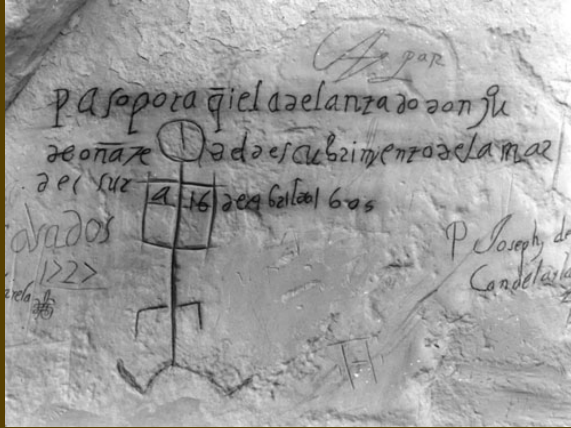 Gaspar
pasopora q̄iel adelantado don ju
de oñate al descubrimyento delamar
del sur a 16 de abril del 1605
P Joseph, de
Candelaria